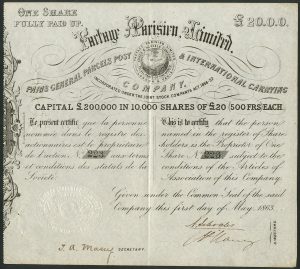 ONE SHARE
FULLY PAID UP.
£20.0.0.
Factage Parisien, Limited,
PARIS GENERAL PARCELS POST & INTERNATIONAL CARRYING
COMPANY.
INCORPORATED UNDER THE JOINT STOCK COMPANIES ACT 1862
CAPITAL £200,000 IN 10,000 SHARES OF £20 (500 FRS) EACH.
Le présent certifie que la personne
nommée dans le registre des
Actionnaires est le propriétaire
de l'action aux termes
et conditions des statuts de la
Société.
This is to certify that the person
named in the register of Share-
holders is the Proprietor of One
Share subject to the
conditions of the Articles of
Association of this Company.
Given under the Common Seal of the said
Company this first day of May, 1863.
SECRETARY.